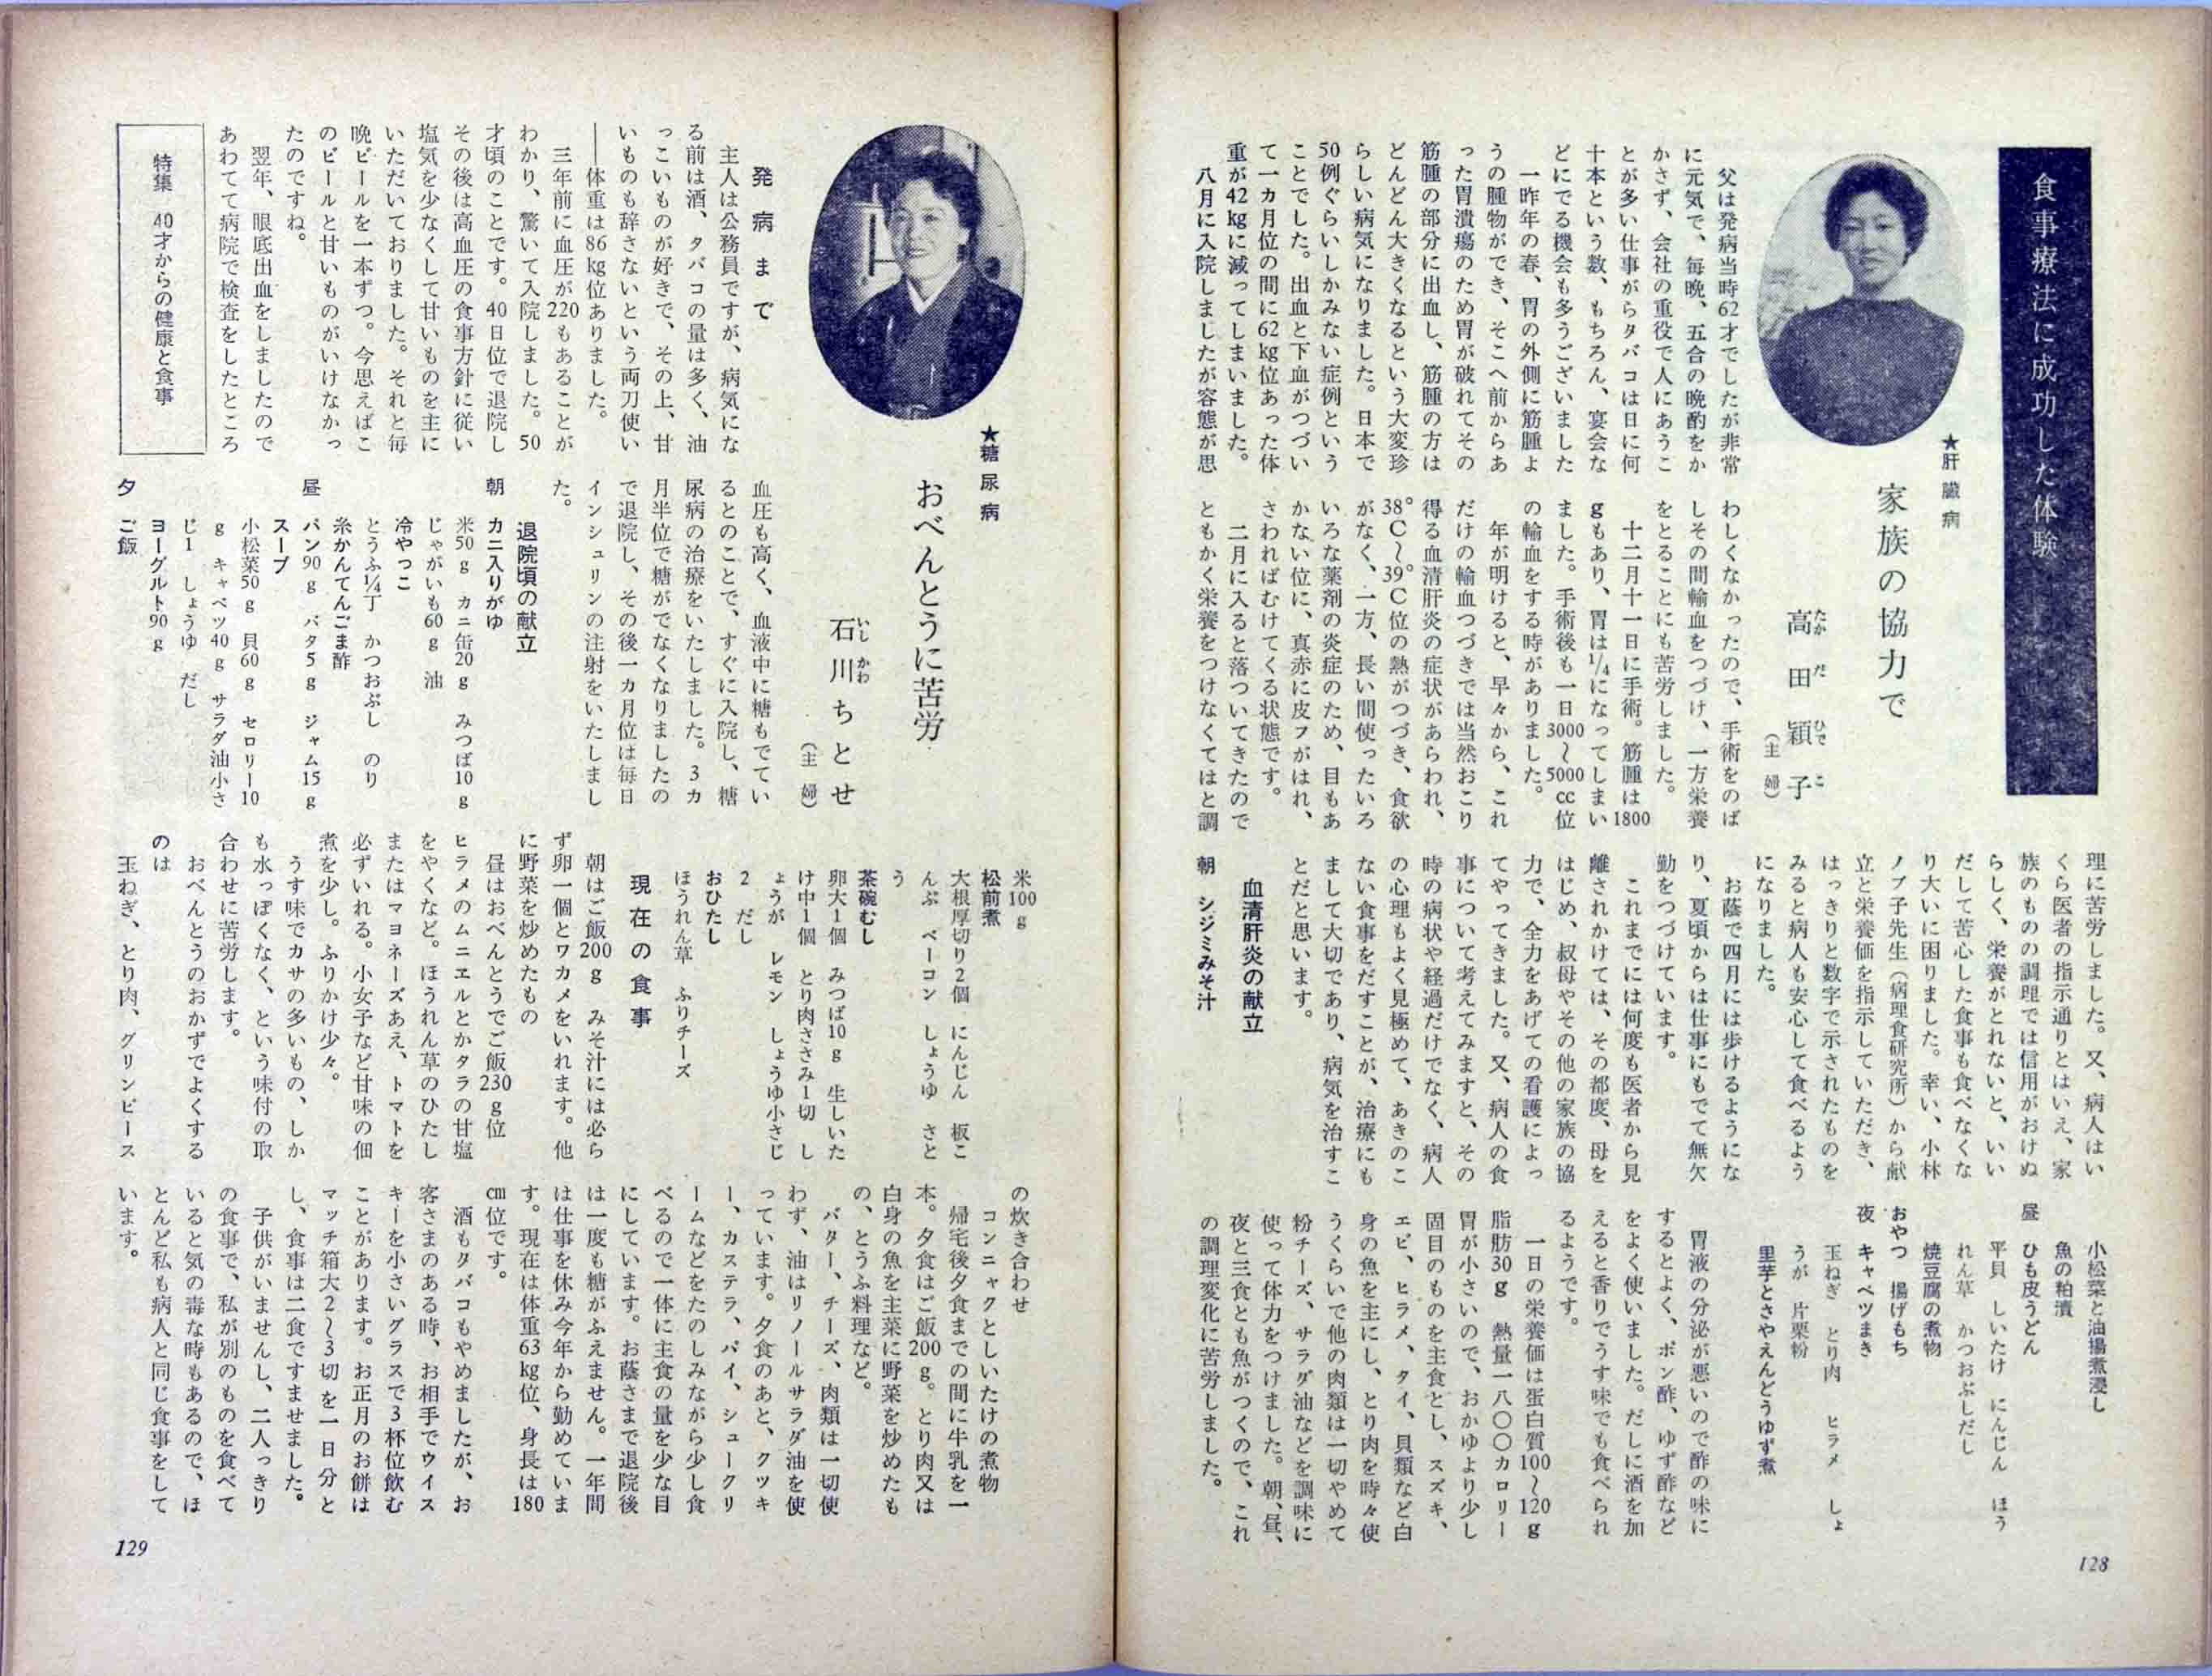 食事療法に成功した体験
★肝臓病
家族の協力で
高田穎子
たかだひでこ
（主婦）
父は発病当時62才でしたが非常
に元気で、毎晩、五合の晩酌をか
かさず、会社の重役で人にあうこ
とが多い仕事がらタバコは日に何
十本という数、もちろん、宴会な
どにでる機会も多うございました
一昨年の春、胃の外側に筋腫よ
うの腫物ができ、そこへ前からあ
った胃潰瘍のため胃が破れてその
筋腫の部分に出血し、筋腫の方は
どんどん大きくなるという大変珍
らしい病気になりました。日本で
50例ぐらいしかみない症例という
ことでした。出血と下血がつづい
て一カ月位の間に62kg位あった体
重が42kgに減ってしまいました。
八月に入院しましたが容態が思
わしくなかったので、手術をのば
しその間輸血をつづけ、一方栄養
をとることにも苦労しました。
十二月十一日に手術。筋腫は1800
gもあり、胃は1/4になってしまい
ました。手術後も一日3000〜5000cc位
の輸血をする時がありました。
年が明けると、早々から、これ
だけの輸血つづきでは当然おこり
得る血清肝炎の症状があらわれ、
38°C〜39°C位の熱がつづき、食欲
がなく、一方、長い間使ったいろ
いろな薬剤の炎症のため、目もあ
かない位に、真赤に皮フがはれ、
さわればむけてくる状態です。
二月に入ると落ついてきたので
ともかく栄養をつけなくてはと調
理に苦労しました。又、病人はい
くら医者の指示通りとはいえ、家
族のものの調理では信用がおけぬ
らしく、栄養がとれないと、いい
だして苦心した食事も食べなくな
り大いに困りました。幸い、小林
ノブ子先生（病理食研究所）から献
立と栄養価を指示していただき、
はっきりと数字で示されたものを
みると病人も安心して食べるよう
になりました。
お蔭で四月には歩けるようにな
り、夏頃からは仕事にもでて無欠
勤をつづけています。
これまでには何度も医者から見
離されかけては、その都度、母を
はじめ、叔母やその他の家族の協
力で、全力をあげての看護によっ
てやってきました。又、病人の食
事について考えてみますと、その
時の病状や経過だけでなく、病人
の心理もよく見極めて、あきのこ
ない食事をだすことが、治療にも
まして大切であり、病気を治すこ
とだと思います。
血清肝炎の献立
朝　シジミみそ汁
小松菜と油揚煮浸し
魚の粕漬
昼　ひも皮うどん
平貝　しいたけ　にんじん　ほう
れん草　かつおぶしだし
焼豆腐の煮物
おやつ　揚げもち
夜　キャベツまき
玉ねぎ　とり肉　ヒラメ　しょ
うが　片栗粉
里芋とさやえんどうゆず煮
胃液の分泌が悪いので酢の味に
するとよく、ポン酢、ゆず酢など
をよく使いました。だしに酒を加
えると香りでうす味でも食べられ
るようです。
一日の栄養価は蛋白質100〜120g
脂肪30g　熱量一八〇〇カロリー
胃が小さいので、おかゆより少し
固目のものを主食とし、スズキ、
エビ、ヒラメ、タイ、貝類など白
身の魚を主にし、とり肉を時々使
うくらいで他の肉類は一切やめて
粉チーズ、サラダ油などを調味に
使って体力をつけました。朝、昼、
夜と三食とも魚がつくので、これ
の調理変化に苦労しました。
128
★糖尿病
おべんとうに苦労
石川ちとせ
いしかわ
（主婦）
発病まで
主人は公務員ですが、病気にな
る前は酒、タバコの量は多く、油
っこいものが好きで、その上、甘
いものも辞さないという両刀使い
――体重は86kg位ありました。
三年前に血圧が220もあることが
わかり、驚いて入院しました。50
才頃のことです。40日位で退院し
その後は高血圧の食事方針に従い
塩気を少なくして甘いものを主に
いただいておりました。それと毎
晩ビールを一本ずつ。今思えばこ
のビールと甘いものがいけなかっ
たのですね。
翌年、眼底出血をしましたので
あわてて病院で検査をしたところ
特集　40才からの健康と食事
血圧も高く、血液中に糖もでてい
るとのことで、すぐに入院し、糖
尿病の治療をいたしました。3カ
月半位で糖がでなくなりましたの
で退院し、その後一カ月位は毎日
インシュリンの注射をいたしまし
た。
退院頃の献立
朝　カニ入りがゆ
米50g　カニ缶20g　みつば10g
じゃがいも60g　油
冷やっこ
とうふ1/4丁　かつおぶし　のり
糸かんてんごま酢
昼　パン90g　バタ5g　ジャム15g
スープ
小松菜50g　貝60g　セロリー10
g　キャベツ40g　サラダ油小さ
じ1　しょうゆ　だし
ヨーグルト90g
夕　ご飯
米100g
松前煮
大根厚切り2個　にんじん　板こ
んぶ　ベーコン　しょうゆ　さと
う
茶碗むし
卵大1個　みつば10g　生しいた
け中1個　とり肉ささみ1切　し
ょうが　レモン　しょうゆ小さじ
2　だし
おひたし
ほうれん草　ふりチーズ
現在の食事
朝はご飯200g　みそ汁には必ら
ず卵一個とワカメをいれます。他
に野菜を炒めたもの
昼はおべんとうでご飯230g位
ヒラメのムニエルとかタラの甘塩
をやくなど。ほうれん草のひたし
またはマヨネーズあえ、トマトを
必ずいれる。小女子など甘味の佃
煮を少し。ふりかけ少々。
うす味でカサの多いもの、しか
も水っぽくなく、という味付の取
合わせに苦労します。
おべんとうのおかずでよくする
のは
玉ねぎ、とり肉、グリンピース
の炊き合わせ
コンニャクとしいたけの煮物
帰宅後夕食までの間に牛乳を一
本。夕食はご飯200g。とり肉又は
白身の魚を主菜に野菜を炒めたも
の、とうふ料理など。
バター、チーズ、肉類は一切使
わず、油はリノールサラダ油を使
っています。夕食のあと、クッキ
ー、カステラ、パイ、シュークリ
ームなどをたのしみながら少し食
べるので一体に主食の量を少な目
にしています。お蔭さまで退院後
は一度も糖がふえません。一年間
は仕事を休み今年から勤めていま
す。現在は体重63kg位、身長は180
cm位です。
酒もタバコもやめましたが、お
客さまのある時、お相手でウイス
キーを小さいグラスで3杯位飲む
ことがあります。お正月のお餅は
マッチ箱大2〜3切を一日分と
し、食事は二食ですませました。
子供がいませんし、二人っきり
の食事で、私が別のものを食べて
いると気の毒な時もあるので、ほ
とんど私も病人と同じ食事をして
います。
129